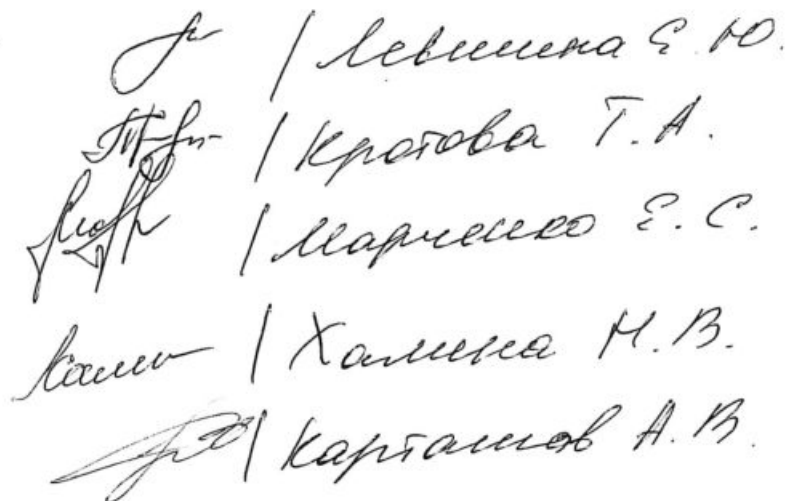 / Левшина Е. Ю.
/ Кротова Т. А.
/ Марченко Е. С.
/ Халина Н. В.
/ Карташов А. В.